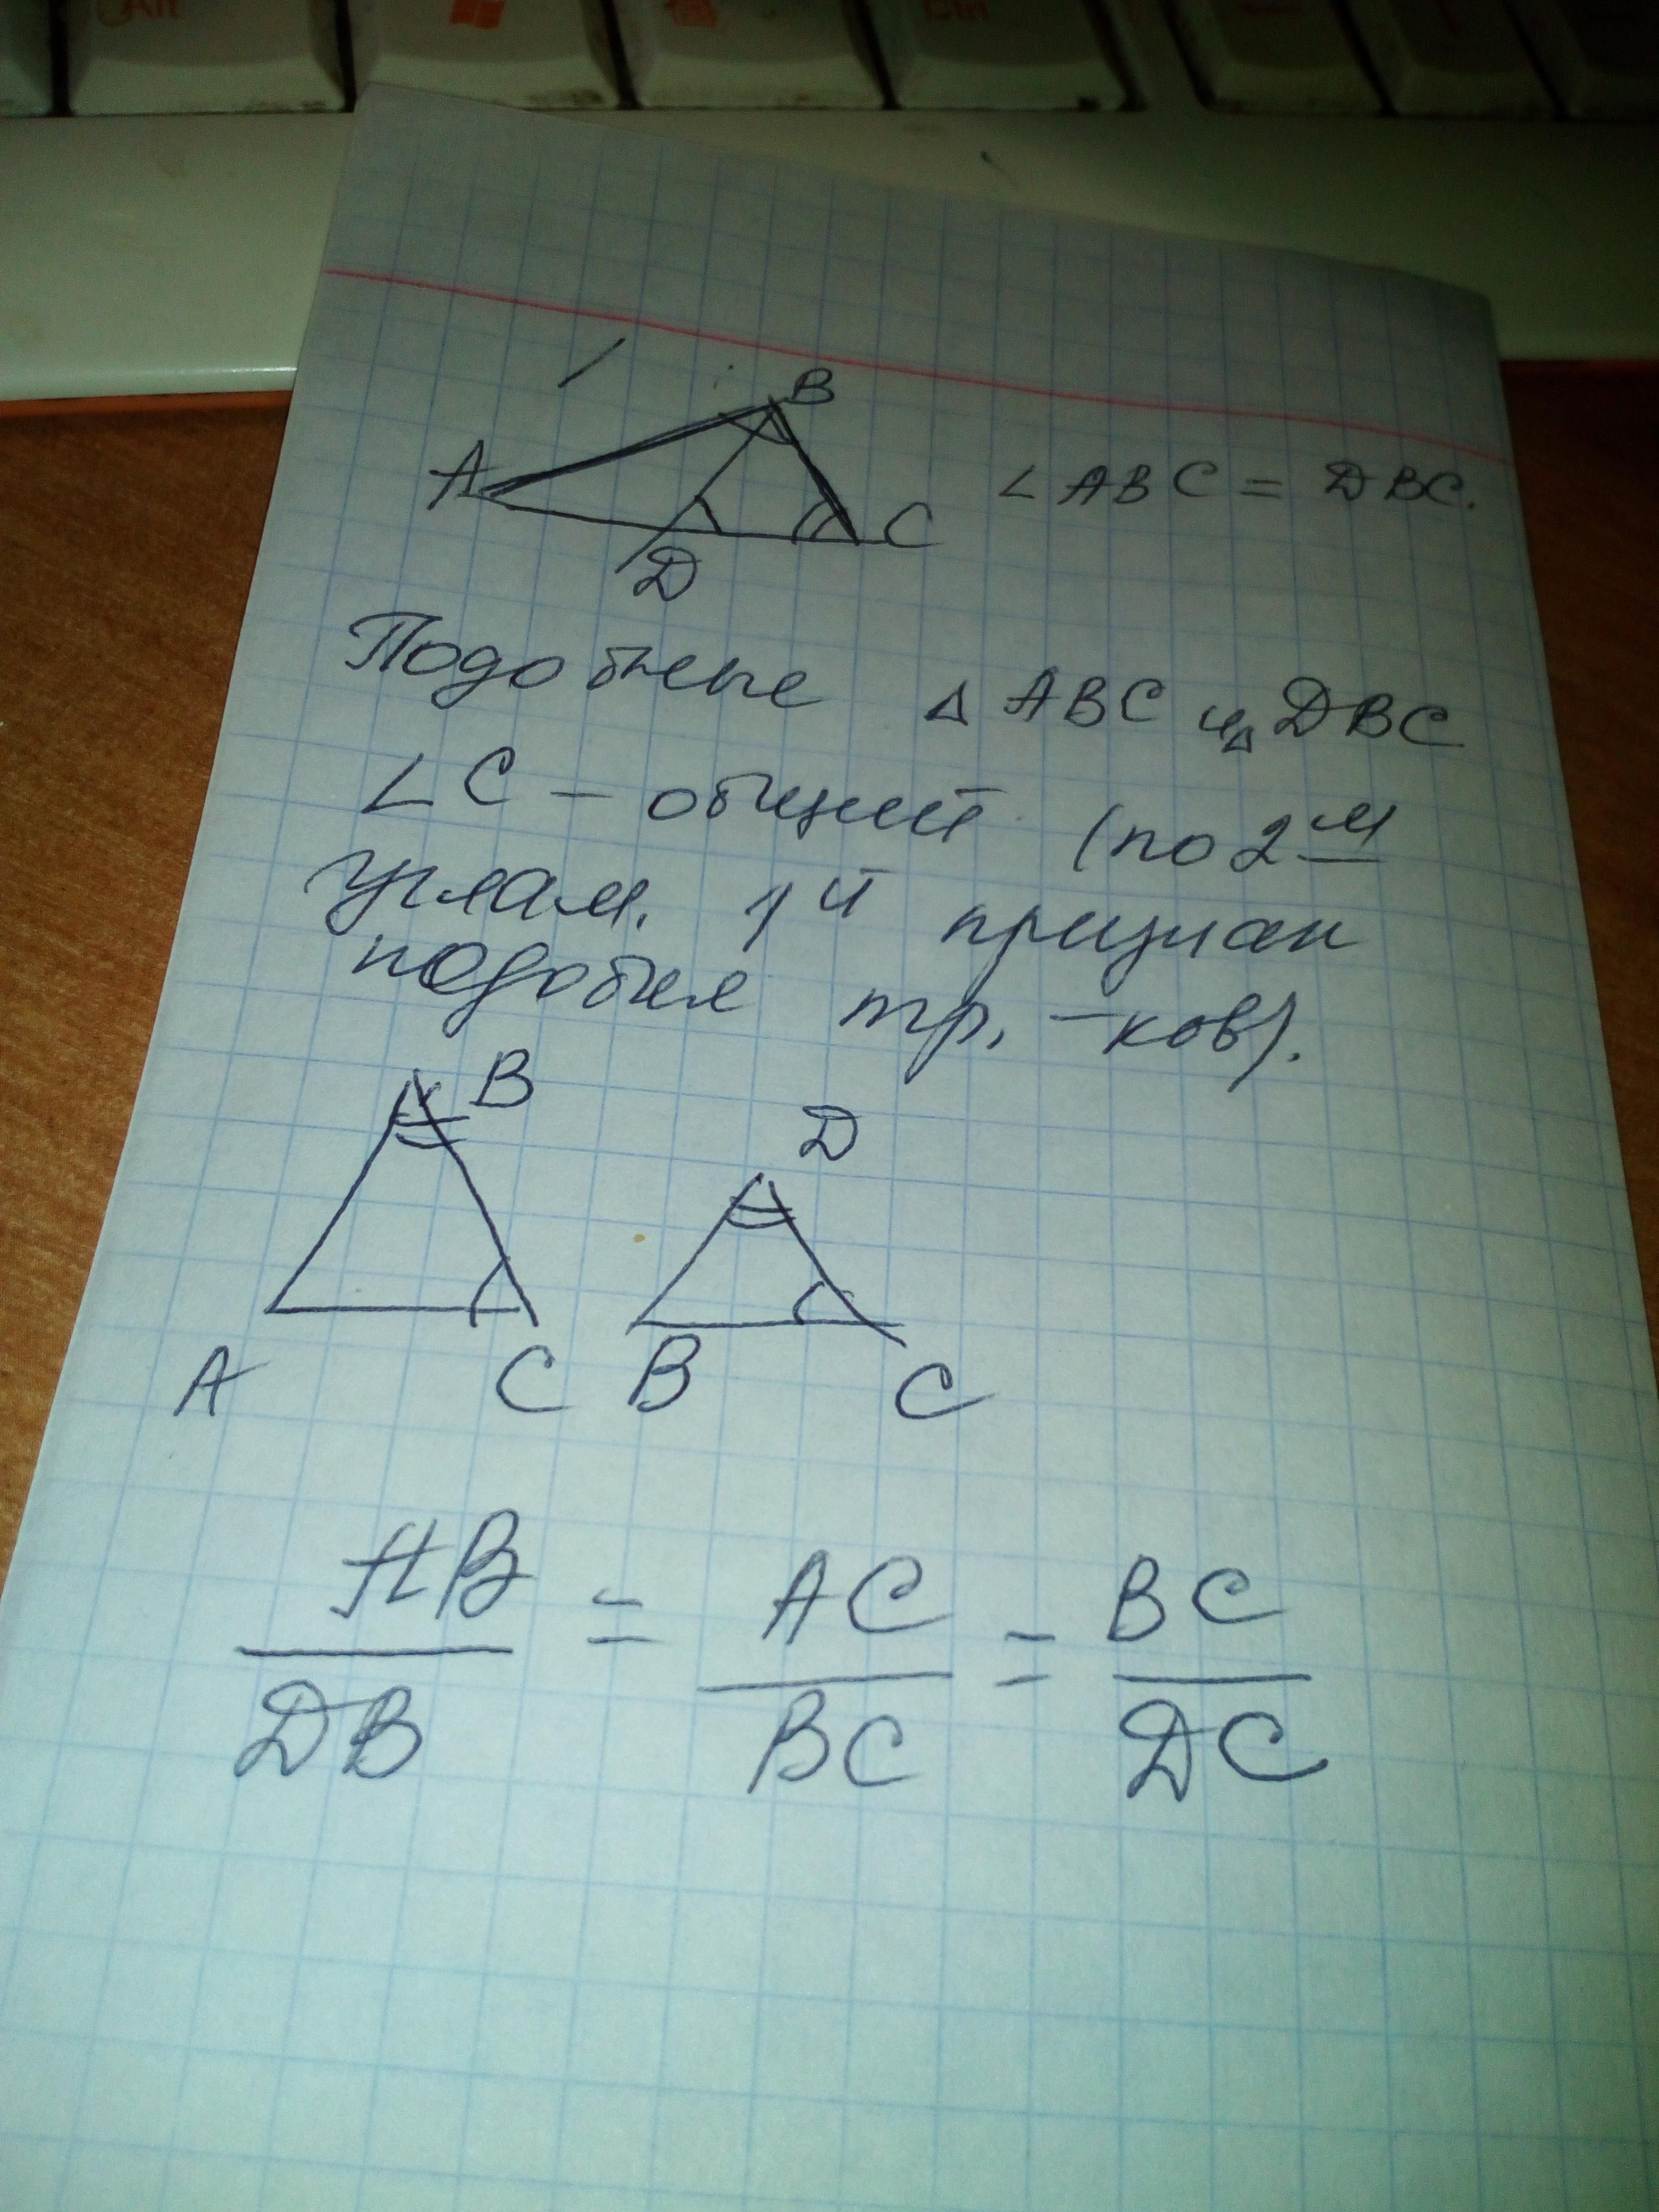 Alt
Ctrl
B
A
C
D
∠ ABC = DBC.
Подобные △ ABC и △ DBC
∠ C – общий (по 2 м
углам. 1й признак
подобия тр.-ков).
B
D
A C B C
AB/DB = AC/BC = BC/DC